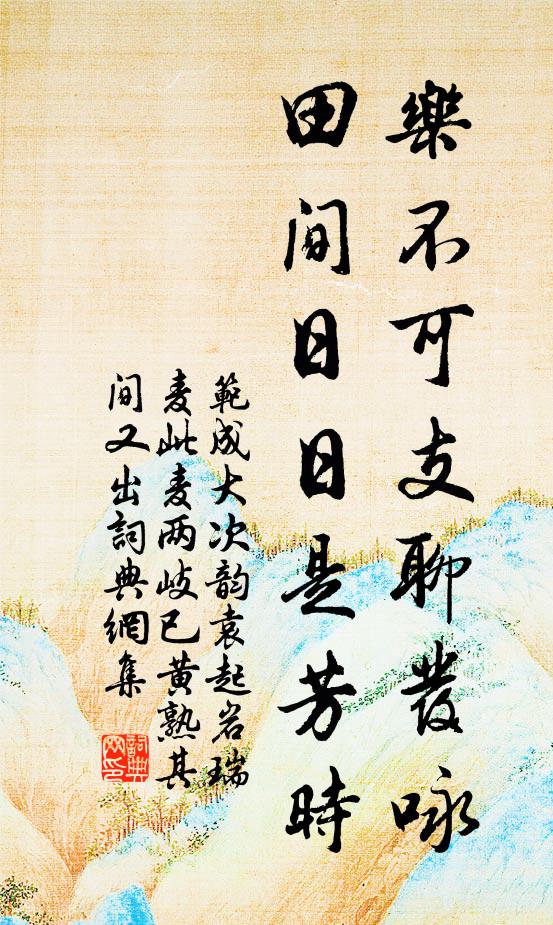 樂不可支聊發咏
田間日日是芳時
範成大次韵袁起岩瑞
麦此麦两歧已黄熟其
间又出詞典網集
詞典
网印